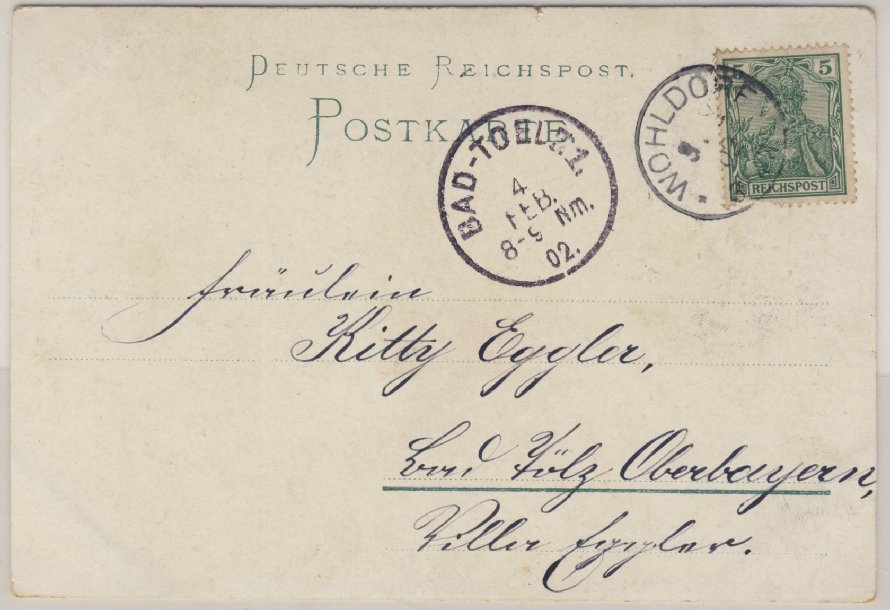 DEUTSCHE REICHSPOST.
POSTKARTE
5
REICHSPOST
WOHLDORF
BAD-TOELZ 1.
4
FEB.
8-9 Nm.
02.
Fräulein
Kitty Eggler,
Bad Tölz Oberbayern,
Villa Eggler.